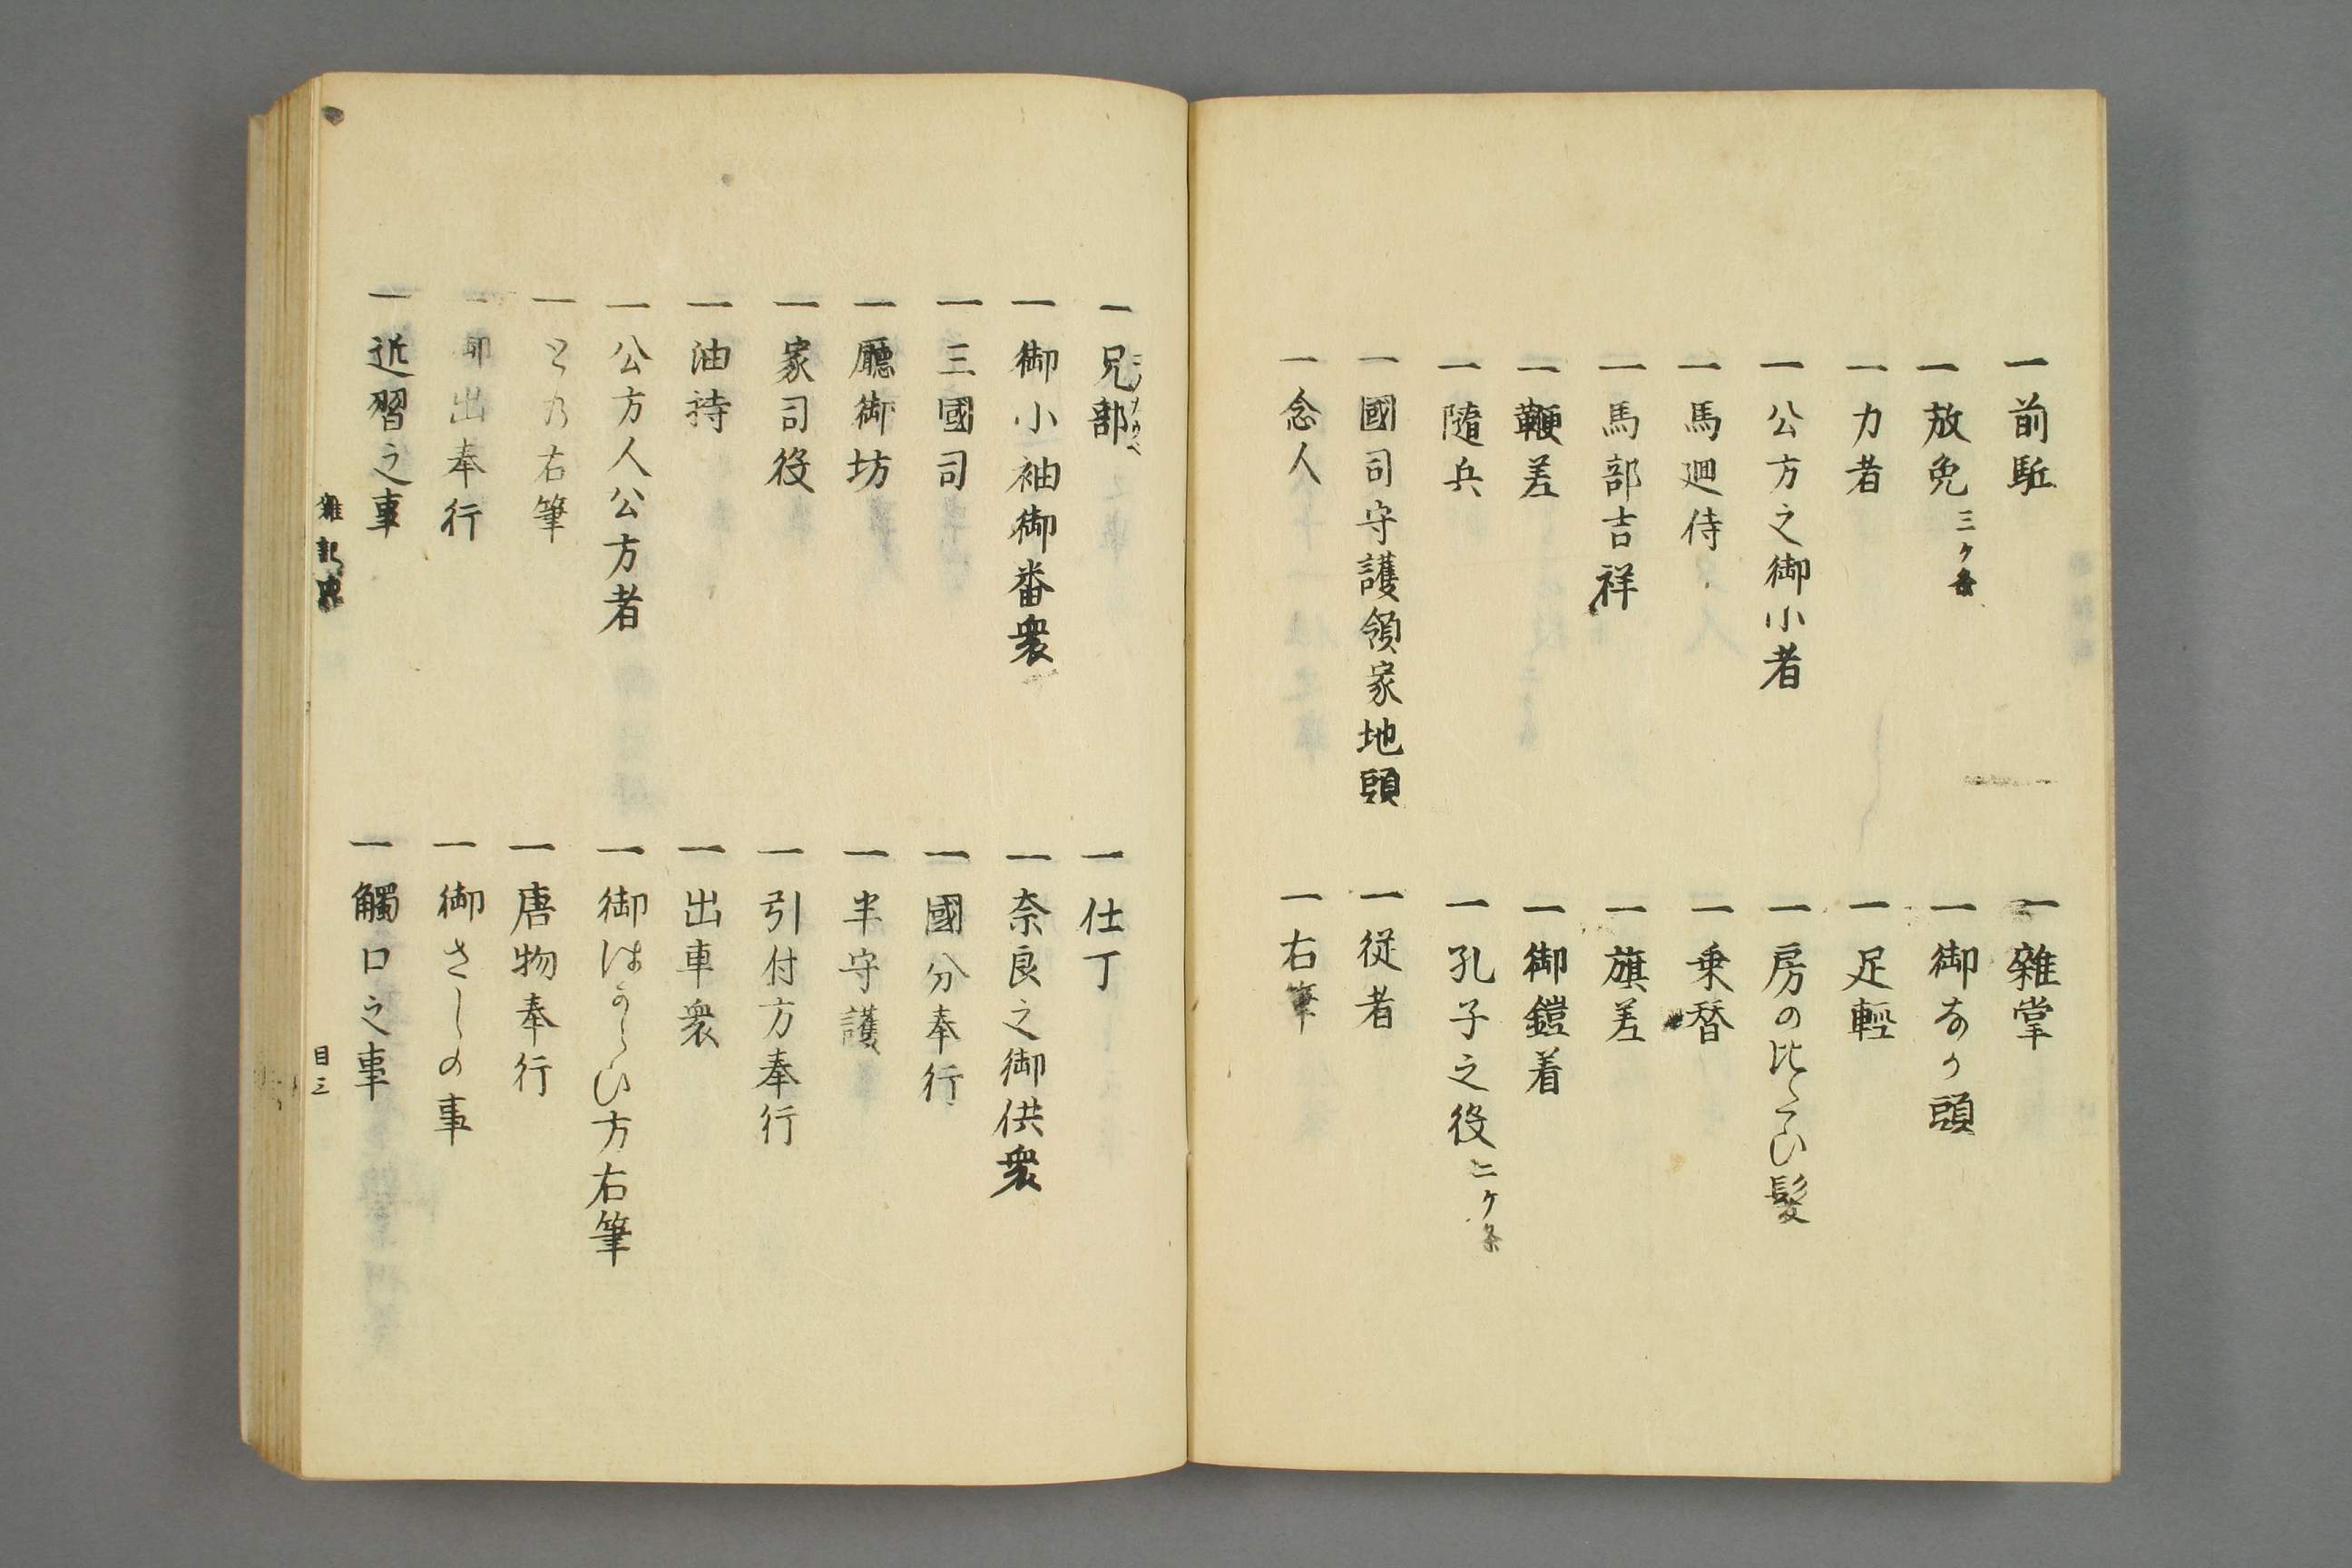 一前駈　一雜掌
一放免三ケ条　一御　頭
一力者　一足輕
一公方之御小者　一房のひたひ髮
一馬廻侍　一乗替
一馬部吉祥　一旗差
一鞭差　一御鎧着
一隨兵　一孔子之役二ケ条
一國司守護領家地頭　一従者
一念人　一右筆
一兄部コノカウヘ　一仕丁
一御小袖御番衆　一奈良之御供衆
一三國司　一國分奉行
一廳御坊　一半守護
一家司役　一引付方奉行
一油持　一出車衆
一公方人公方者　一御はからひ方右筆
一との右筆　一唐物奉行
一御出奉行　一御さしの事
一近習之事　一觸口之事
雜記　目三